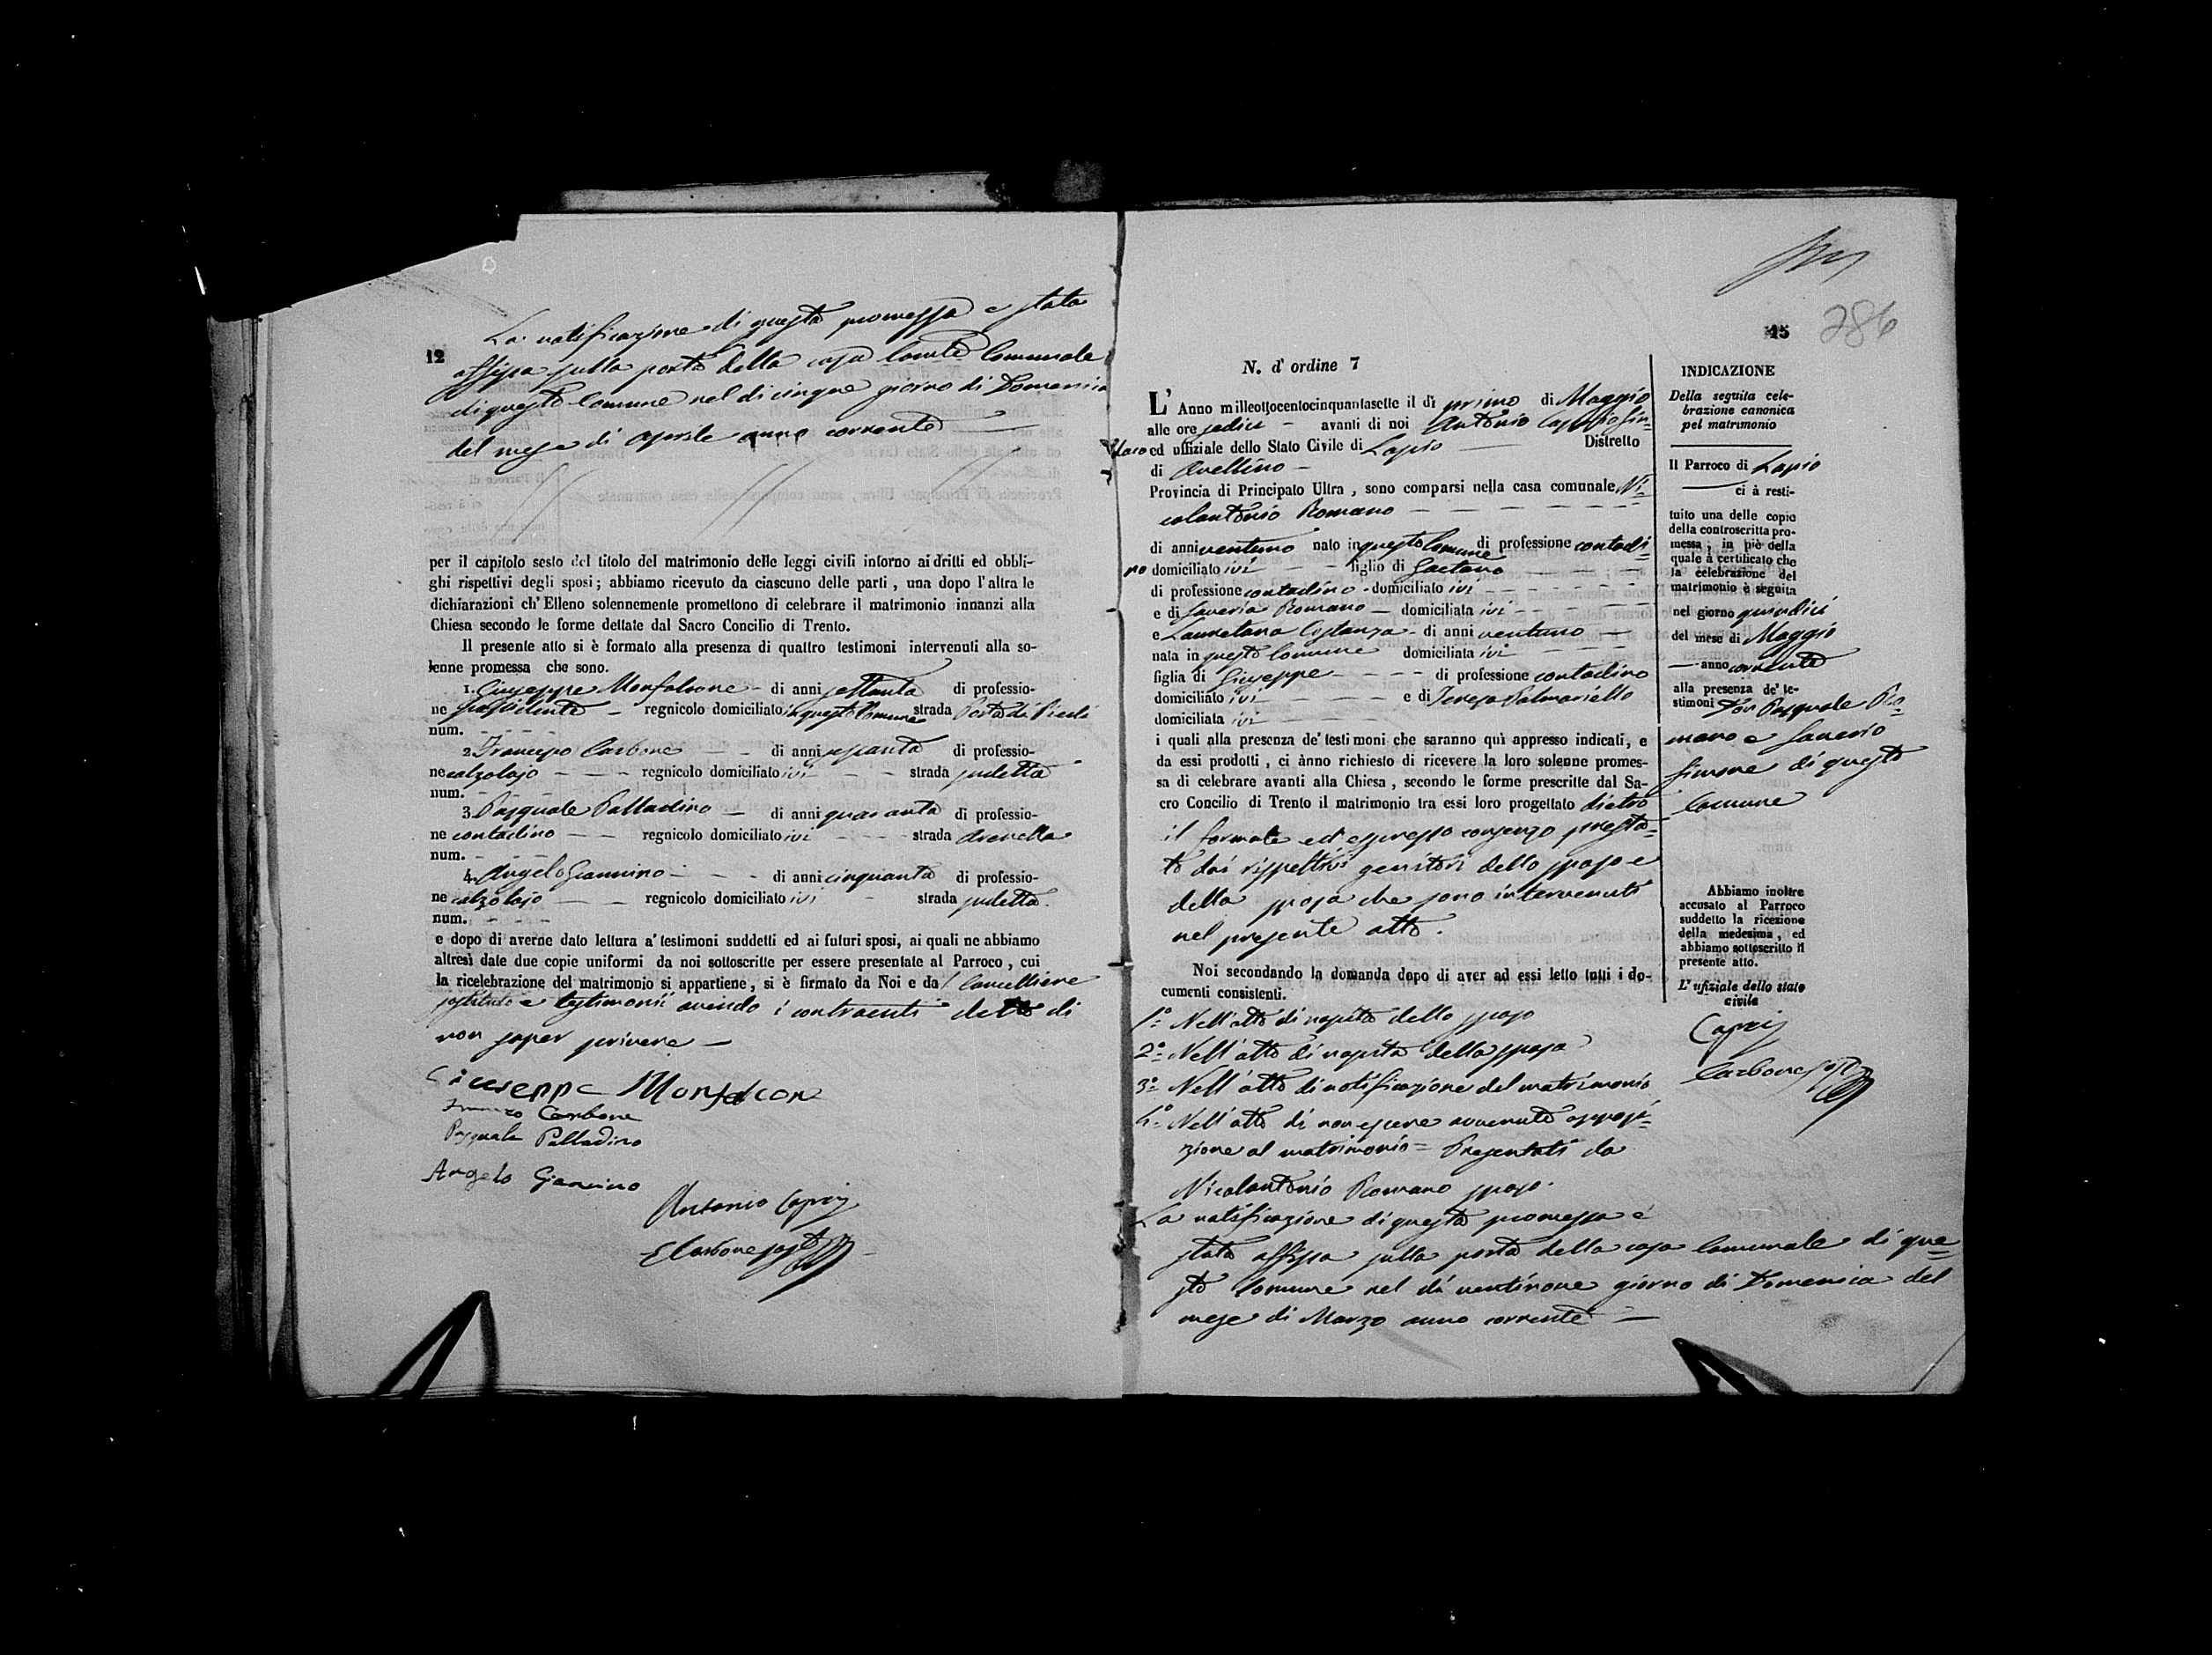 La notificazione di questa promessa è stata
12
affissa sulla porta della casa Comunale
di questo Comune nel di cinque giorno di Domenica
del mese di Aprile anno corrente
per il capitolo sesto del titolo del matrimonio delle leggi civili intorno ai dritti ed obbli-
ghi rispettivi degli sposi; abbiamo ricevuto da ciascuno delle parti, una dopo l'altra le
dichiarazioni ch'Elleno solennemente promettono di celebrare il matrimonio innanzi alla
Chiesa secondo le forme dettate dal Sacro Concilio di Trento.
Il presente atto si è formato alla presenza di quattro testimoni intervenuti alla so-
lenne promessa che sono.
1. Giuseppe Monfalcone - di anni settanta di professio-
ne possidente - regnicolo domiciliato in questo Comune strada Porta di
num. - - - -
2. Francesco Carbone - - di anni sessanta di professio-
ne calzolajo - - - regnicolo domiciliato ivi - - strada
num. - - -
3. Pasquale Palladino - di anni quaranta di professio-
ne contadino - - regnicolo domiciliato ivi - - - strada
num. - - -
4. Angelo Giannino - - - di anni cinquanta di professio-
ne calzolajo - - regnicolo domiciliato ivi - strada
num. - - - -
e dopo di averne dato lettura a' testimoni suddetti ed ai futuri sposi, ai quali ne abbiamo
altresì date due copie uniformi da noi sottoscritte per essere presentate al Parroco, cui
la ricelebrazione del matrimonio si appartiene, si è firmato da Noi e dal Cancelliere
sostituto e testimonii avendo i contraenti detto di
non saper scrivere -
Giuseppe Monfalcone
Francesco Carbone
Pasquale Palladino
Angelo Giannino
Antonio Caprij
E Carbone sost
286
15
N. d' ordine 7
L' Anno milleottocentocinquantasette il dì primo di Maggio
alle ore sedici - avanti di noi Antonio Caprij Sin-
daco ed uffiziale dello Stato Civile di Lapio - Distretto
di Avellino -
Provincia di Principato Ultra, sono comparsi nella casa comunale Ni-
colantonio Romano - - - - - - -
di anni ventuno nato in questo Comune di professione contadi-
no domiciliato ivi - - - figlio di Gaetano - - - -
di professione contadino - domiciliato ivi - - - -
e di Saveria Romano - domiciliata ivi - - - - -
e Lauretana Costanza - di anni ventuno -
nata in questo Comune domiciliata ivi - - - -
figlia di Giuseppe - - - - di professione contadino
domiciliato ivi - - - - e di Teresa Palmariello
domiciliata ivi - - - -
i quali alla presenza de' testimoni che saranno quì appresso indicati, e
da essi prodotti, ci ànno richiesto di ricevere la loro solenne promes-
sa di celebrare avanti alla Chiesa, secondo le forme prescritte dal Sa-
cro Concilio di Trento il matrimonio tra essi loro progettato dietro
il formale ed espresso consenzo presta-
to dai rispettivi genitori dello sposo e
della sposa che sono intervenuti
nel presente atto.
Noi secondando la domanda dopo di aver ad essi letto tutti i do-
cumenti consistenti.
1° Nell'atto di nascita dello sposo
2° Nell'atto di nascita della sposa
3° Nell'atto di notificazione del matrimonio
4° Nell'atto di non essere avvenuta opposi-
zione al matrimonio = Presentati da
Nicolantonio Romano sposo.
La notificazione di questa promessa è
stata affissa sulla porta della casa Comunale di que-
sto Comune nel dì ventinove giorno di Domenica del
mese di Marzo anno corrente -
INDICAZIONE
Della seguita cele-
brazione canonica
pel matrimonio
Il Parroco di Lapio
- ci à resti-
tuito una delle copie
della controscritta pro-
messa, in piè della
quale à certificato che
la celebrazione del
matrimonio è seguita
nel giorno quindici
del mese di Maggio
- anno corrente
alla presenza de' te-
stimoni Don Pasquale Ro-
mano e Saverio
Simone di questo
Comune
Abbiamo inoltre
accusato al Parroco
suddetto la ricezione
della medesima, ed
abbiamo sottoscritto il
presente atto.
L' ufiziale dello stato
civile
Caprij
Carbone sost